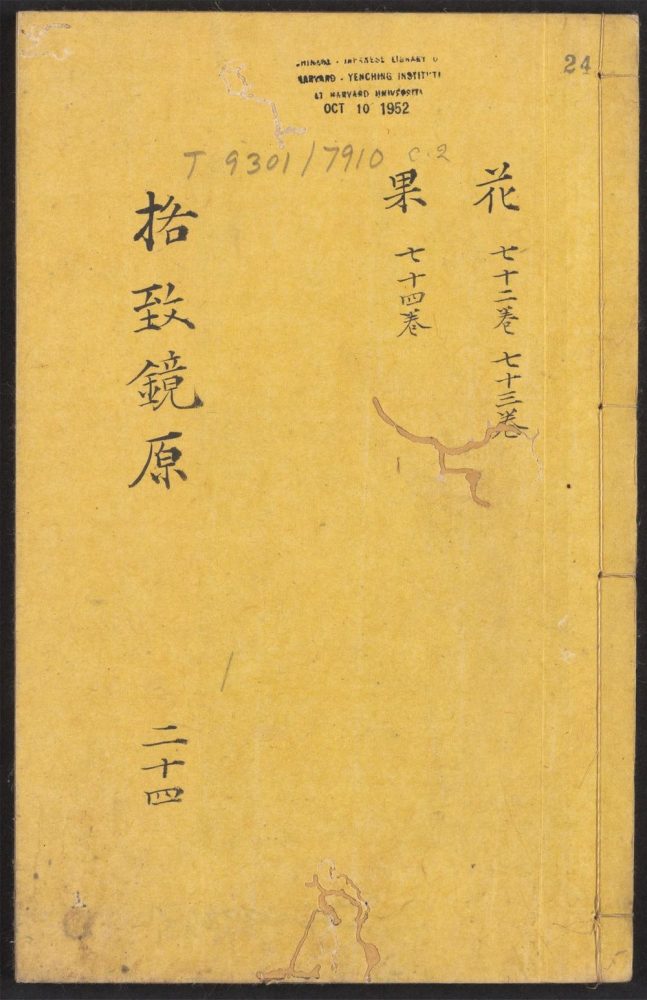 CHINESE - JAPANESE LIBRARY O
HARVARD - YENCHING INSTITUTI
AT HARVARD UNIVERSITY
OCT 10 1952
24
T 9301/7910 c.2
花 七十二卷 七十三卷
果 七十四卷
格致鏡原
二十四